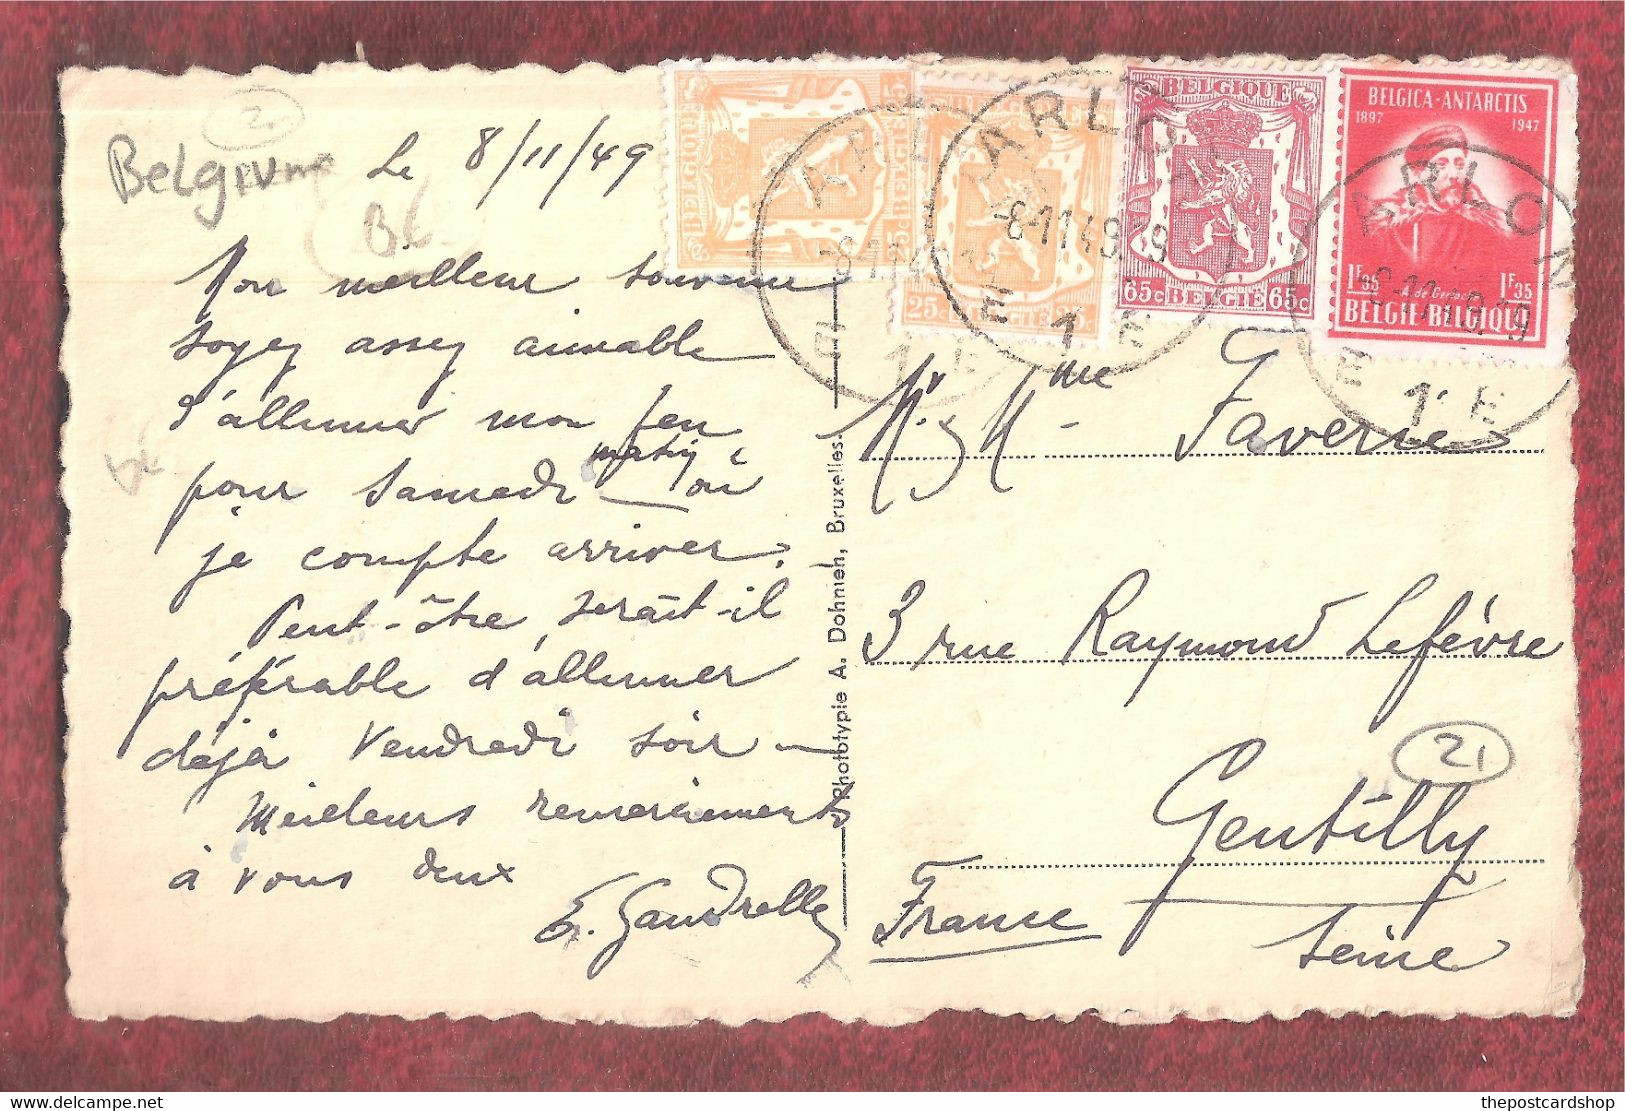 Belgium
2.
BL
Le 8/11/49
Mon meilleur souvenir
soyez assez aimable
d'allumer mon feu
pour Samedi matin où
je compte arriver.
Peut-être serait-il
préférable d'allumer
déjà Vendredi soir
Meilleurs remerciements
à vous deux
E. Gaudrelle
Phototypie A. Dohmen, Bruxelles.
BELGIQUE 25c BELGIE 25c
25c BELGIE 25c
BELGIQUE
65c BELGIE 65c
BELGICA-ANTARCTIS
1897 1947
1F35 1F35
BELGIE-BELGIQUE
ARLON
-8-11 49
E 1 E
ARLON
-8-11 49
E 1 E
ARLON
E 1 E
Mr & Mme Faverie
3 rue Raymond Lefévre
21
Gentilly
Seine
France
thepostcardshop
delcampe.net